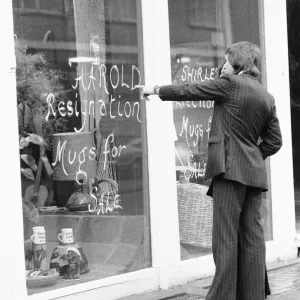 HAROLD
Resignation
Mugs for
SALE
SHIRLEY
Mugs
for
SALE